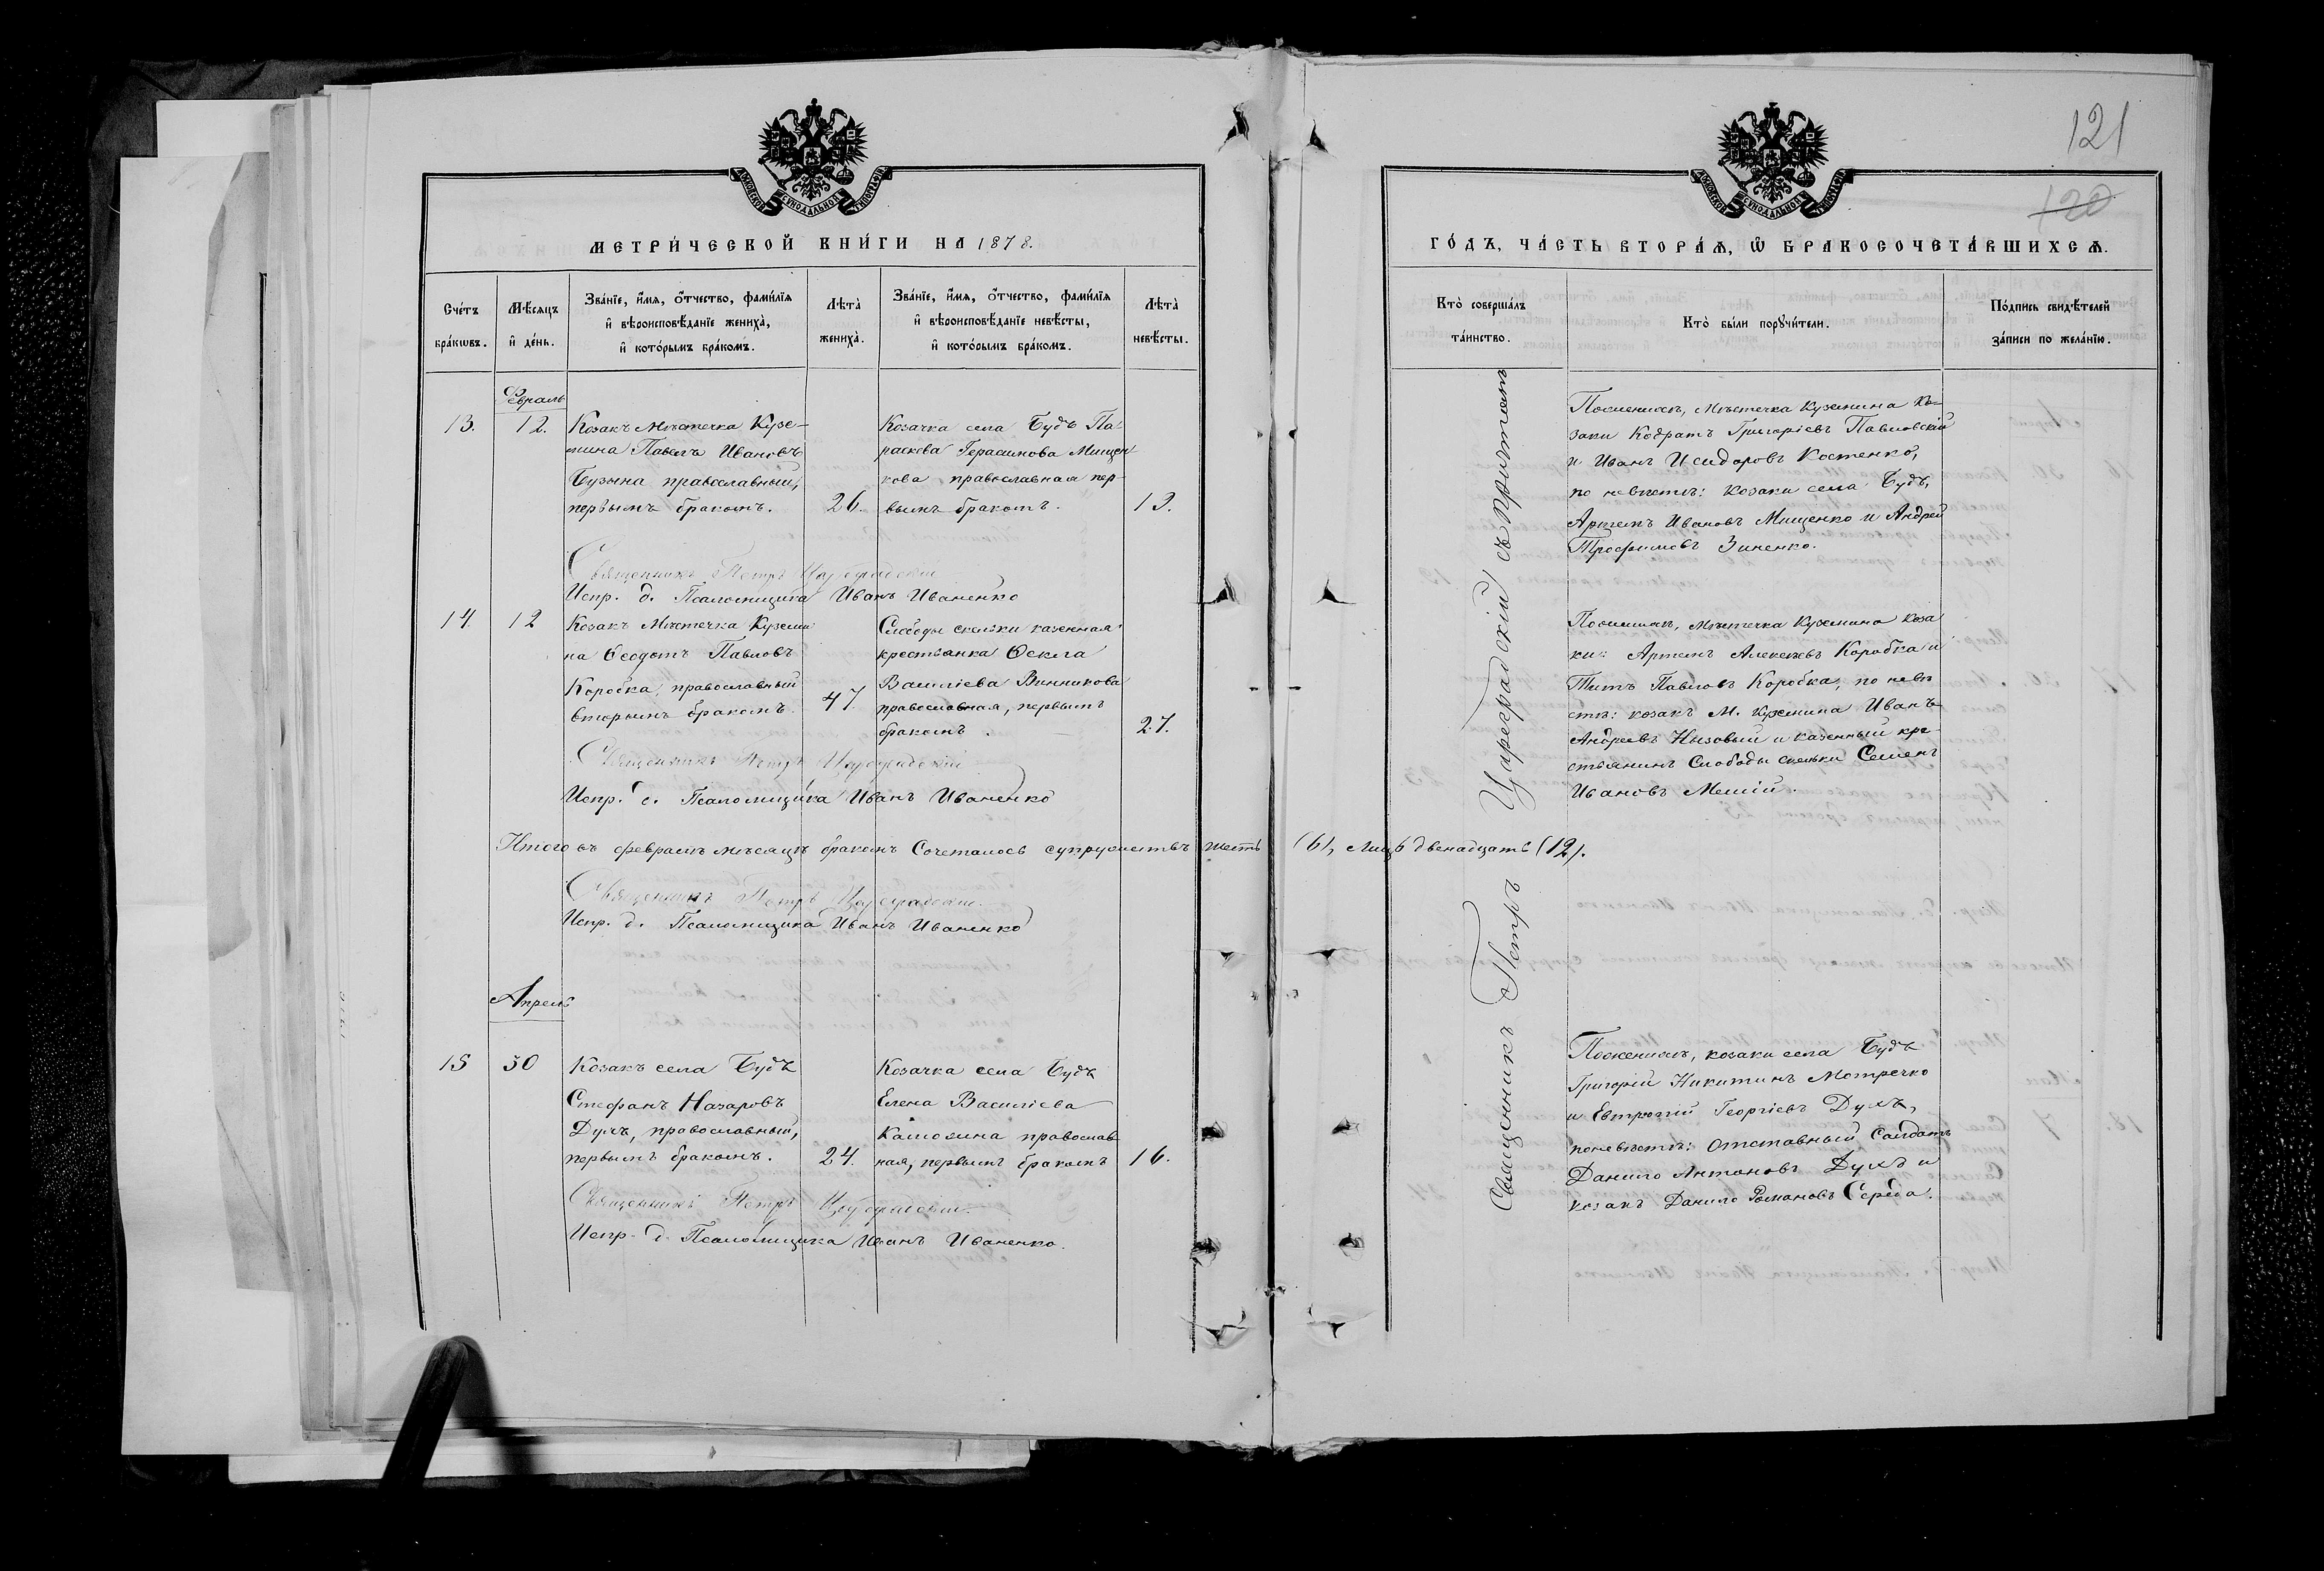 МОСКОВСКОЙ СУНОДАЛЬНОЙ ТИПОГРАФІИ
МЕТРИ́ЧЕСКОЙ КНИ́ГИ НА 1878.
Сче́тъ бра́кѡвъ.
Мѣ́сяцъ и҆ де́нь.
Зва́нїе, и҆́мя, ѻ҆́тчество, фами́лїя
и҆ вѣроисповѣ́данїе жениха̀,
и҆ кото́рымъ бра́комъ.
Лѣта̀ жениха̀.
Зва́нїе, и҆́мя, ѻ҆́тчество, фами́лїя
и҆ вѣроисповѣ́данїе невѣ́сты,
и҆ кото́рымъ бра́комъ.
Лѣта̀ невѣ́сты.
Февраль
13. 12.
Козакъ Мѣстечка Кузе-
мина Павелъ Ивановъ
Бузына православный,
первымъ бракомъ.
26.
Козачка села Будъ Па-
раскева Герасимова Мищен-
кова православная пер-
вымъ бракомъ.
19.
Священникъ Петръ Цареградскій
Испр. д. Псаломщика Иванъ Иваненко
14. 12
Козакъ Мѣстечка Куземи-
на Ѳеодотъ Павловъ
Коробка, православный
вторымъ бракомъ.
47.
Слободы скельки казенная
крестьянка Ѳекла
Василіева Винникова
православная, первымъ
бракомъ.
27.
Священникъ Петръ Цареградскій
Испр. д. Псаломщика Иванъ Иваненко
Итого въ февралѣ мѣсяцѣ бракомъ сочеталось супружествъ шесть (6), лицъ двенадцать (12).
Священникъ Петръ Цареградскій.
Испр. д. Псаломщика Иванъ Иваненко
Апрель
15 30
Козакъ села Будъ
Стефанъ Назаровъ
Духъ, православный,
первымъ бракомъ.
24.
Козачка села Будъ
Елена Василіева
православ
ная, первымъ бракомъ
16.
Священникъ Петръ Цареградскій
Испр. д. Псаломщика Иванъ Иваненко.
121
120
МОСКОВСКОЙ СУНОДАЛЬНОЙ ТИПОГРАФІИ
ГО́ДЪ, ЧА́СТЬ ВТОРА́Я, Ѡ҆ БРАКОСОЧЕТА́ВШИХСЯ.
Кто̀ соверша́лъ та́инство.
Кто̀ бы́ли порꙋчи́тели.
По́дпись свидѣ́телей за́писи по жела́нїю.
Священникъ Петръ Цареградскій съ причтомъ
По женихѣ, Мѣстечка Куземина Ко-
заки Кодратъ Григоріевъ Павловскій
и Иванъ Исидоровъ Костенко,
по невѣстѣ: козаки села Будъ,
Артемъ Ивановъ Мищенко и Андрей
Трофимовъ Зиненко.
По женихѣ, Мѣстечка Куземина Коза
ки: Артемъ Алексѣевъ Коробка и
Титъ Павловъ Коробка, по невѣ
стѣ: козакъ М. Куземина Иванъ
Андреевъ Низовый и казенный кре-
стьянинъ Слободы скельки Семенъ
Ивановъ
По женихѣ, козаки села Будъ
Григорій Никитинъ Мотречко
и Евтропій Георгіевъ Духъ,
по невѣстѣ: отставный Салдатъ
Данило Антоновъ Духъ и
козакъ Данило Романовъ Середа.